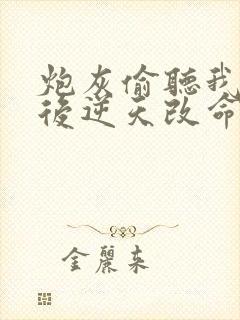 炮灰偷聽我
後逆天改命
金麗来